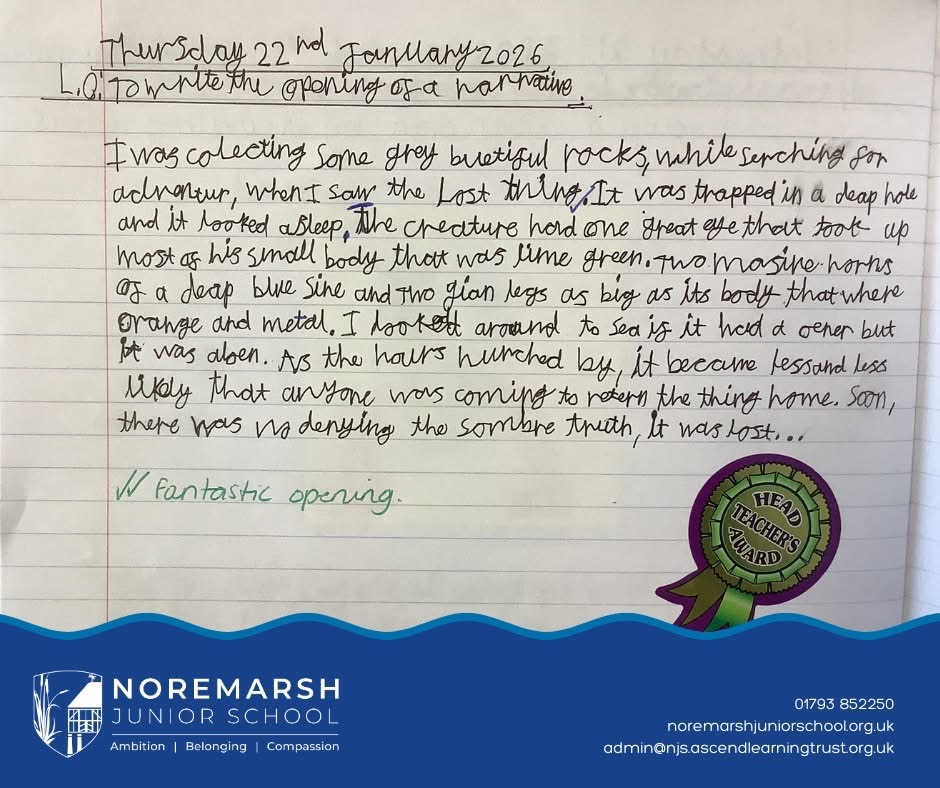 Thursday 22nd January 2026
L.Q: To write the opening of a narrative.
I was colecting some grey buetiful rocks, while serching for
adventur, when I saw the Lost thing. It was trapped in a deap hole
and it looked asleep. The creature had one great eye that took up
most of his small body that was lime green. Two masine horns
of a deap blue sine and two gian legs as big as its body that where
orange and metal. I looked around to sea if it had a oner but
it was aloen. As the hours hunched by, it became less and less
likely that anyone was coming to retern the thing home. Soon,
there was no denying the sombre truth, it was lost...
Fantastic opening.
HEAD
TEACHER'S
AWARD
NOREMARSH
JUNIOR SCHOOL
Ambition | Belonging | Compassion
01793 852250
noremarshjuniorschool.org.uk
admin@njs.ascendlearningtrust.org.uk